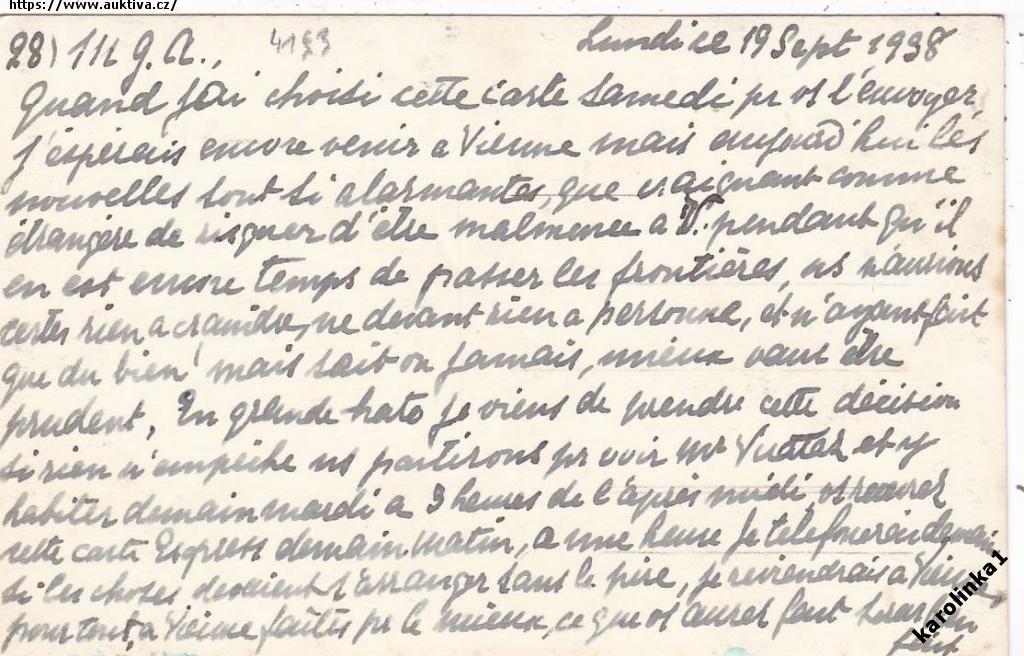 https://www.auktiva.cz/
28) 111 G.A., 4193 Lundi ce 19 Sept 1938
Quand j'ai choisi cette carte samedi pr vs l'envoyer,
j'espérais encore venir a Vienne mais aujourd'hui les
nouvelles sont si alarmantes, que craignant comme
étrangère de risquer d'être malmenée a V. pendant qu'il
en est encore temps de passer les frontières, ns n'aurions
certes rien a craindre, ne devant rien a personne, et n'ayant fait
que du bien! mais sait on jamais, mieux vaut être
prudent, En grande hate je viens de prendre cette décision
si rien n'empêche ns partirons pr voir Mr et y
habiter demain mardi a 3 heures de l'après midi, vs recevrez
cette carte Express demain matin, a une heure je telefonerai
si les choses devaient s'arranger sans le pire, je reviendrais a
pour tout, a Vienne faites pr le mieux, ce que vs aurez fait sera
fait
karolinka1